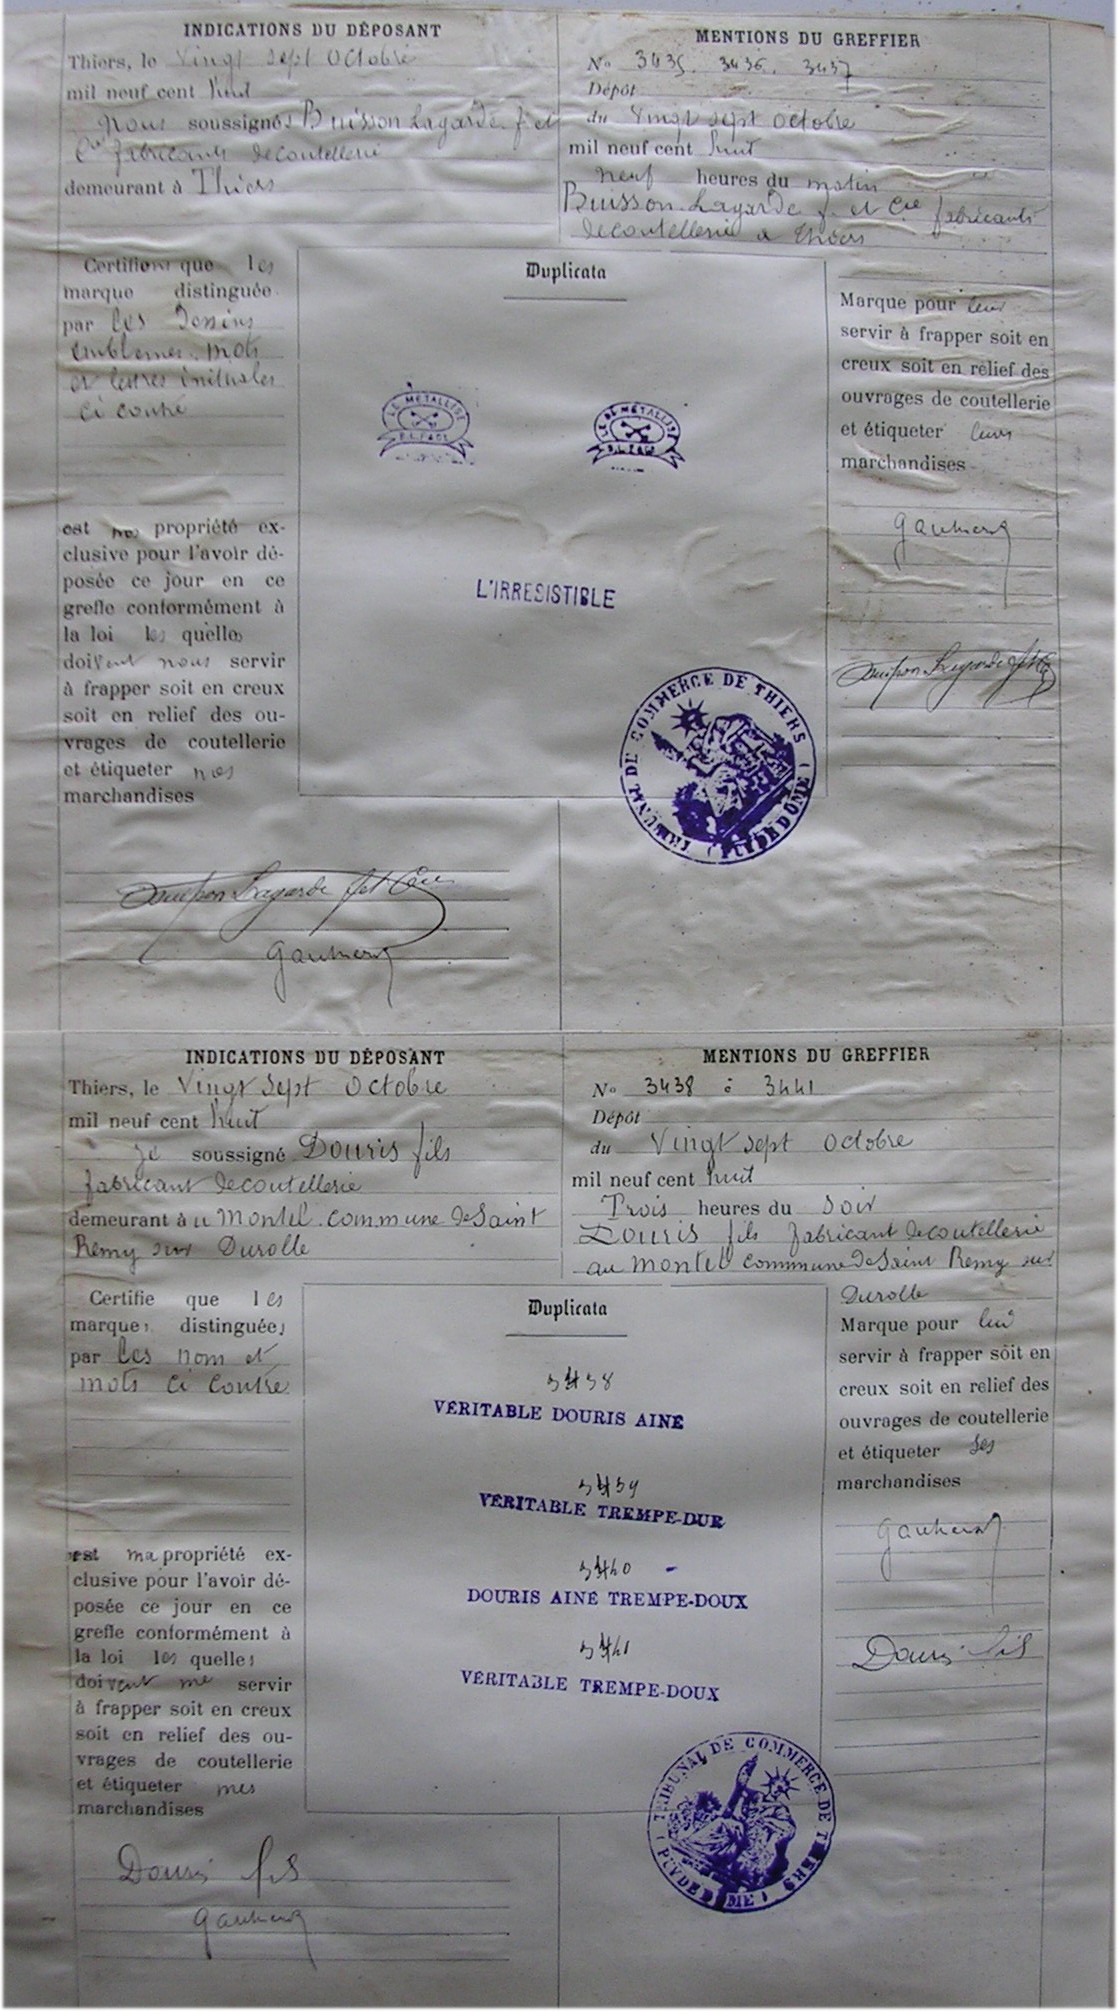 INDICATIONS DU DÉPOSANT
Thiers, le Vingt sept Octobre
mil neuf cent huit
nous soussignés Buisson Lagarde f. et
Cie fabricants de coutellerie
demeurant à Thiers
MENTIONS DU GREFFIER
No 3435. 3436. 3437
Dépôt
du Vingt sept octobre
mil neuf cent huit
neuf heures du matin
Buisson Lagarde f. et Cie fabricants
de coutellerie a Thiers
Certifions que les
marque distinguée
par les dessins
emblemes. mots
et lettres initiales
ci contre
est nos propriété ex-
clusive pour l'avoir dé-
posée ce jour en ce
greffe conformément à
la loi les quelles
doivent nous servir
à frapper soit en creux
soit en relief des ou-
vrages de coutellerie
et étiqueter nos
marchandises
Duplicata
LE MÉTALLISÉ
LE MÉTALLISÉ
L'IRRESISTIBLE
TRIBUNAL DE COMMERCE DE THIERS (PUY DE DÔME)
Marque pour leur
servir à frapper soit en
creux soit en relief des
ouvrages de coutellerie
et étiqueter leurs
marchandises
Buisson Lagarde f et Cie
Buisson Lagarde f et Cie
INDICATIONS DU DÉPOSANT
Thiers, le Vingt sept Octobre
mil neuf cent huit
je soussigné Douris fils
fabricant de coutellerie
demeurant à u Montel. commune de Saint
Remy sur Durolle
MENTIONS DU GREFFIER
No 3438 à 3441
Dépôt
du Vingt sept octobre
mil neuf cent huit
Trois heures du soir
Douris fils fabricant de coutellerie
au Montel commune de Saint Remy sur
Durolle
Certifie que les
marques distinguées
par les nom et
mots ci contre
est ma propriété ex-
clusive pour l'avoir dé-
posée ce jour en ce
greffe conformément à
la loi les quelles
doivent me servir
à frapper soit en creux
soit en relief des ou-
vrages de coutellerie
et étiqueter mes
marchandises
Duplicata
3438
VÉRITABLE DOURIS AINÉ
3439
VÉRITABLE TREMPE-DUR
3440
DOURIS AINÉ TREMPE-DOUX
3441
VÉRITABLE TREMPE-DOUX
TRIBUNAL DE COMMERCE DE THIERS (PUY DE DÔME)
Marque pour lui
servir à frapper soit en
creux soit en relief des
ouvrages de coutellerie
et étiqueter ses
marchandises
Douris fils
Douris fils